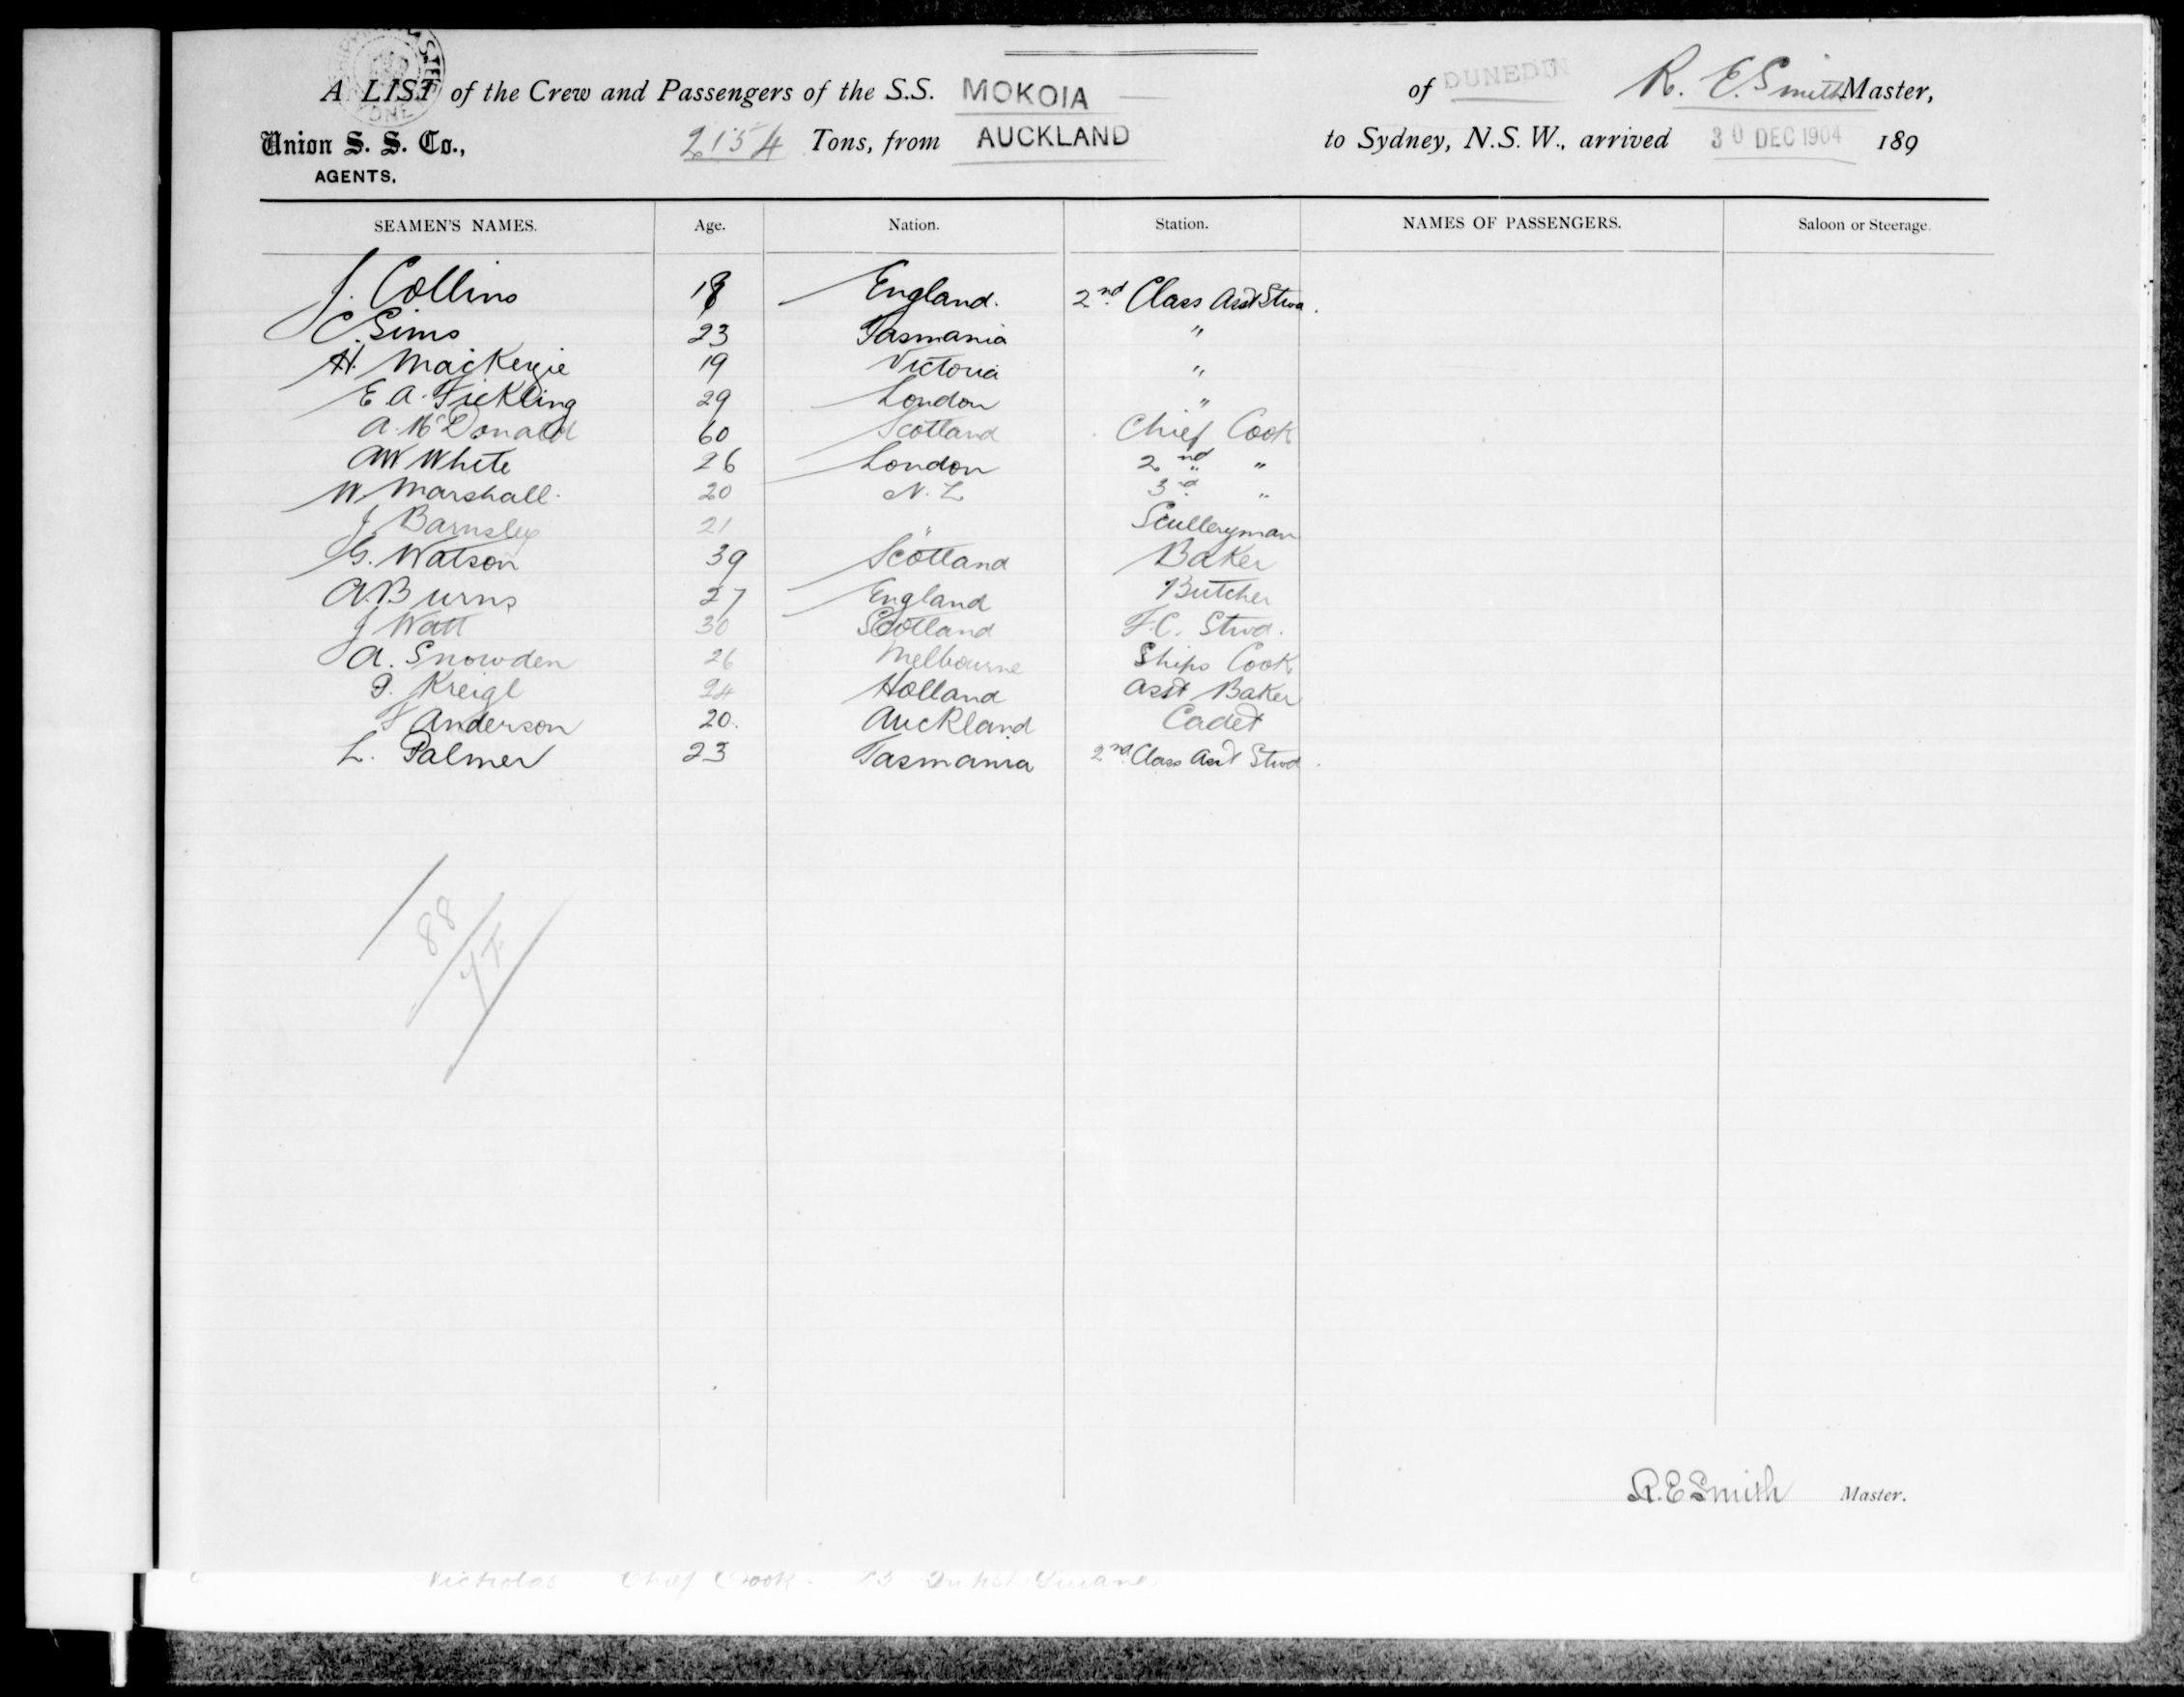 A LIST of the Crew and Passengers of the S.S. MOKOIA of DUNEDIN R. E. Smith Master,
Union S. S. Co., 2154 Tons, from AUCKLAND to Sydney, N.S.W., arrived 30 DEC 1904 189
AGENTS.
SEAMEN'S NAMES. Age. Nation. Station. NAMES OF PASSENGERS. Saloon or Steerage.
J. Collins 18 England. 2nd Class Asst Stwd.
C. Sims 23 Tasmania "
H. MacKenzie 19 Victoria "
E. A. Fickling 29 London "
A. McDonald 60 Scotland Chief Cook
AW White 26 London 2nd " "
W Marshall. 20 N.Z. 3rd "
J Barnsley 21 " Sculleryman
G. Watson 39 Scotland Baker
A. Burns 27 England Butcher
J Watt 30 Scotland F.C. Stwd.
A. Snowden 26 Melbourne Ships Cook
Kreigl 24 Holland Asst Baker
F Anderson 20. Auckland Cadet
L. Palmer 23 Tasmania 2nd Class Asst Stwd.
88
R.E Smith Master.
Nicholas Chief Cook